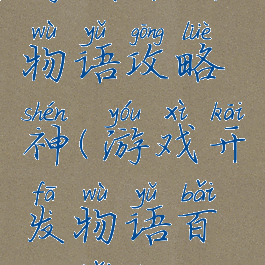 wù yǔ gōng lüè
物语攻略
shén yóu xì kāi
神(游戏开
fā wù yǔ bǎi
发物语百